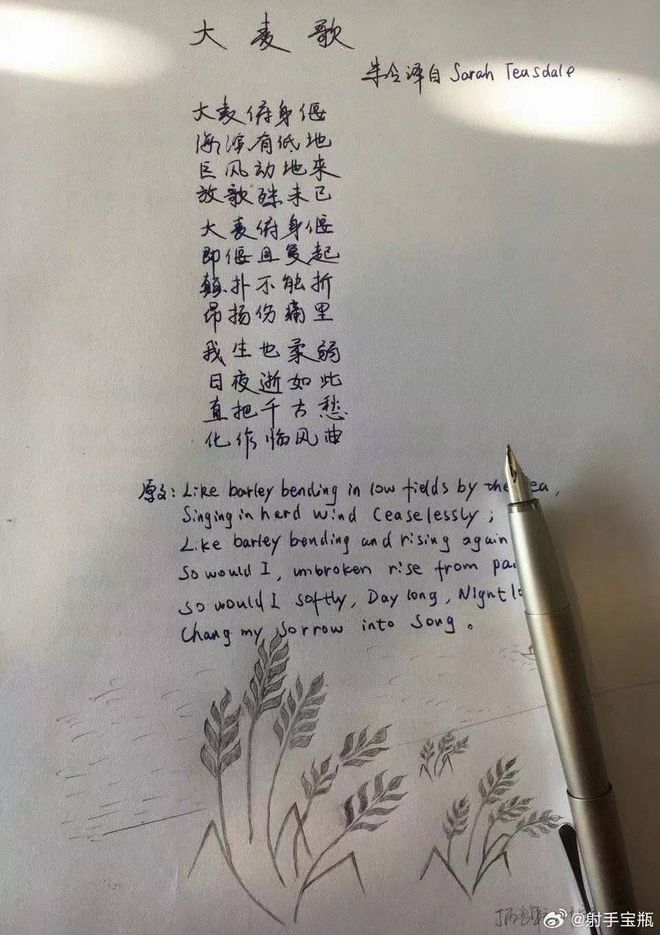 大麦歌
朱令译自 Sarah Teasdale
大麦俯身偃
海滨有低地
巨风动地来
放歌殊未已
大麦俯身偃
即偃且复起
颠扑不能折
昂扬伤痛里
我生也柔弱
日夜逝如此
直把千古愁
化作临风曲
原文: Like barley bending in low fields by the ea,
Singing in hard wind Ceaselessly;
Like barley bending and rising again
So would I, unbroken rise from pa
So would I softly, Day long, Night l
Chang my sorrow into song。
@射手宝瓶